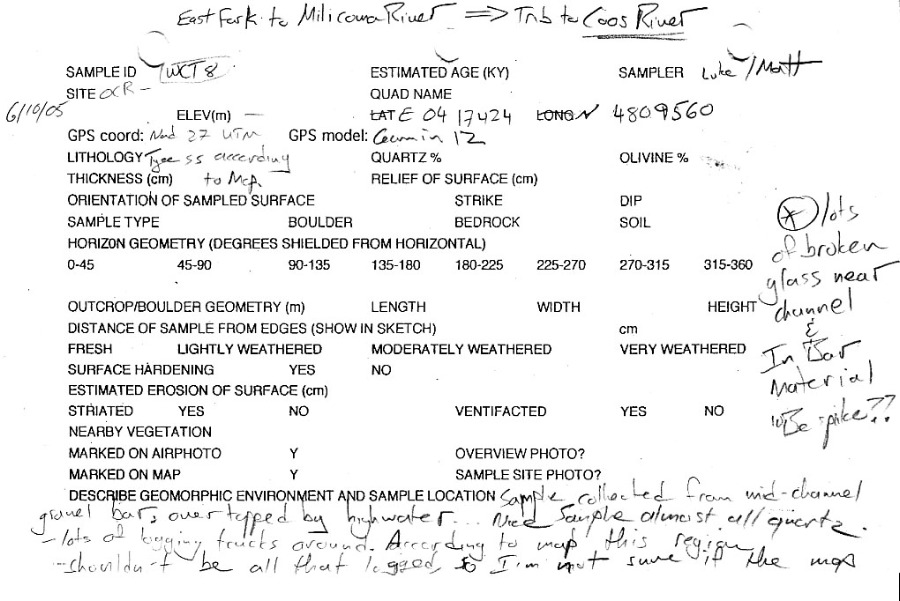 East Fork to Milicoma River ⟹ Trib to Coos River
SAMPLE ID WCT8 ESTIMATED AGE (KY) SAMPLER Luke / Matt
SITE OCR - QUAD NAME
6/10/05
ELEV(m) — LAT E 0417424 LONG N 4809560
GPS coord: Nad 27 UTM GPS model: Garmin 12
LITHOLOGY Tyee ss according QUARTZ % OLIVINE %
THICKNESS (cm) to Map. RELIEF OF SURFACE (cm)
ORIENTATION OF SAMPLED SURFACE STRIKE DIP
SAMPLE TYPE BOULDER BEDROCK SOIL
HORIZON GEOMETRY (DEGREES SHIELDED FROM HORIZONTAL)
0-45 45-90 90-135 135-180 180-225 225-270 270-315 315-360
OUTCROP/BOULDER GEOMETRY (m) LENGTH WIDTH HEIGHT
DISTANCE OF SAMPLE FROM EDGES (SHOW IN SKETCH) cm
FRESH LIGHTLY WEATHERED MODERATELY WEATHERED VERY WEATHERED
SURFACE HARDENING YES NO
ESTIMATED EROSION OF SURFACE (cm)
STRIATED YES NO VENTIFACTED YES NO
NEARBY VEGETATION
MARKED ON AIRPHOTO Y OVERVIEW PHOTO?
MARKED ON MAP Y SAMPLE SITE PHOTO?
* lots
of broken
glass near
channel
&
In Bar
Material
10Be spike??
DESCRIBE GEOMORPHIC ENVIRONMENT AND SAMPLE LOCATION Sample collected from mid-channel
gravel bar, overtopped by highwater... Nice Sample almost all quartz.
- lots of logging trucks around. According to map this region
- shouldn't be all that logged, so I'm not sure if the map